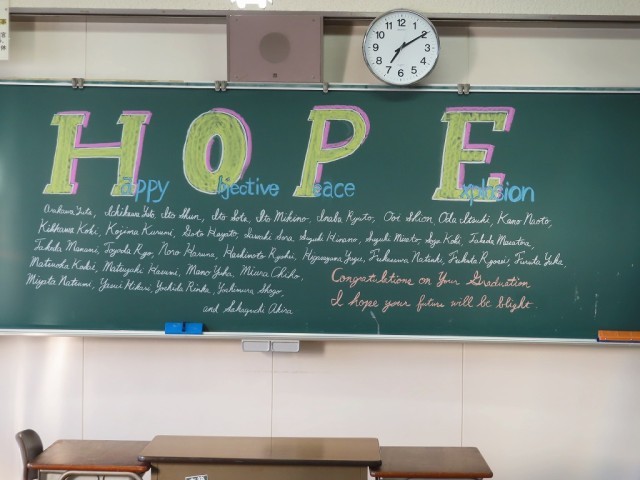 12
11 1
10 2
9 3
8 4
7 6 5
HOPE
appy bjective eace xplosion
Arakawa Yuta, Ichikawa Yuto, Ito Shun, Ito Sota, Ito Mihiro, Inaba Ryuto, Ooi Shion, Oda Itsuki, Kano Naoto,
Kikkawa Koki, Kojima Kurumi, Goto Hayato, Suzuki Sora, Suzuki Hinano, Suzuki Misato, Soga Koki, Takeda Masatora,
Takada Manami, Toyoda Ryo, Noro Haruna, Hashimoto Kyohei, Hasegawa Yuya, Fukazawa Natsuki, Fukuta Ryosei, Furuta Yuka,
Matsuoka Kakii, Matsuyuki Harumi, Mano Yuka, Miura Chiho,
Miyata Natsumi, Yasui Hikari, Yuchida Rinka, Yoshimura Shogo,
and Sakaguchi Akira
Congratulations on Your Graduation
I hope your future will be blight.